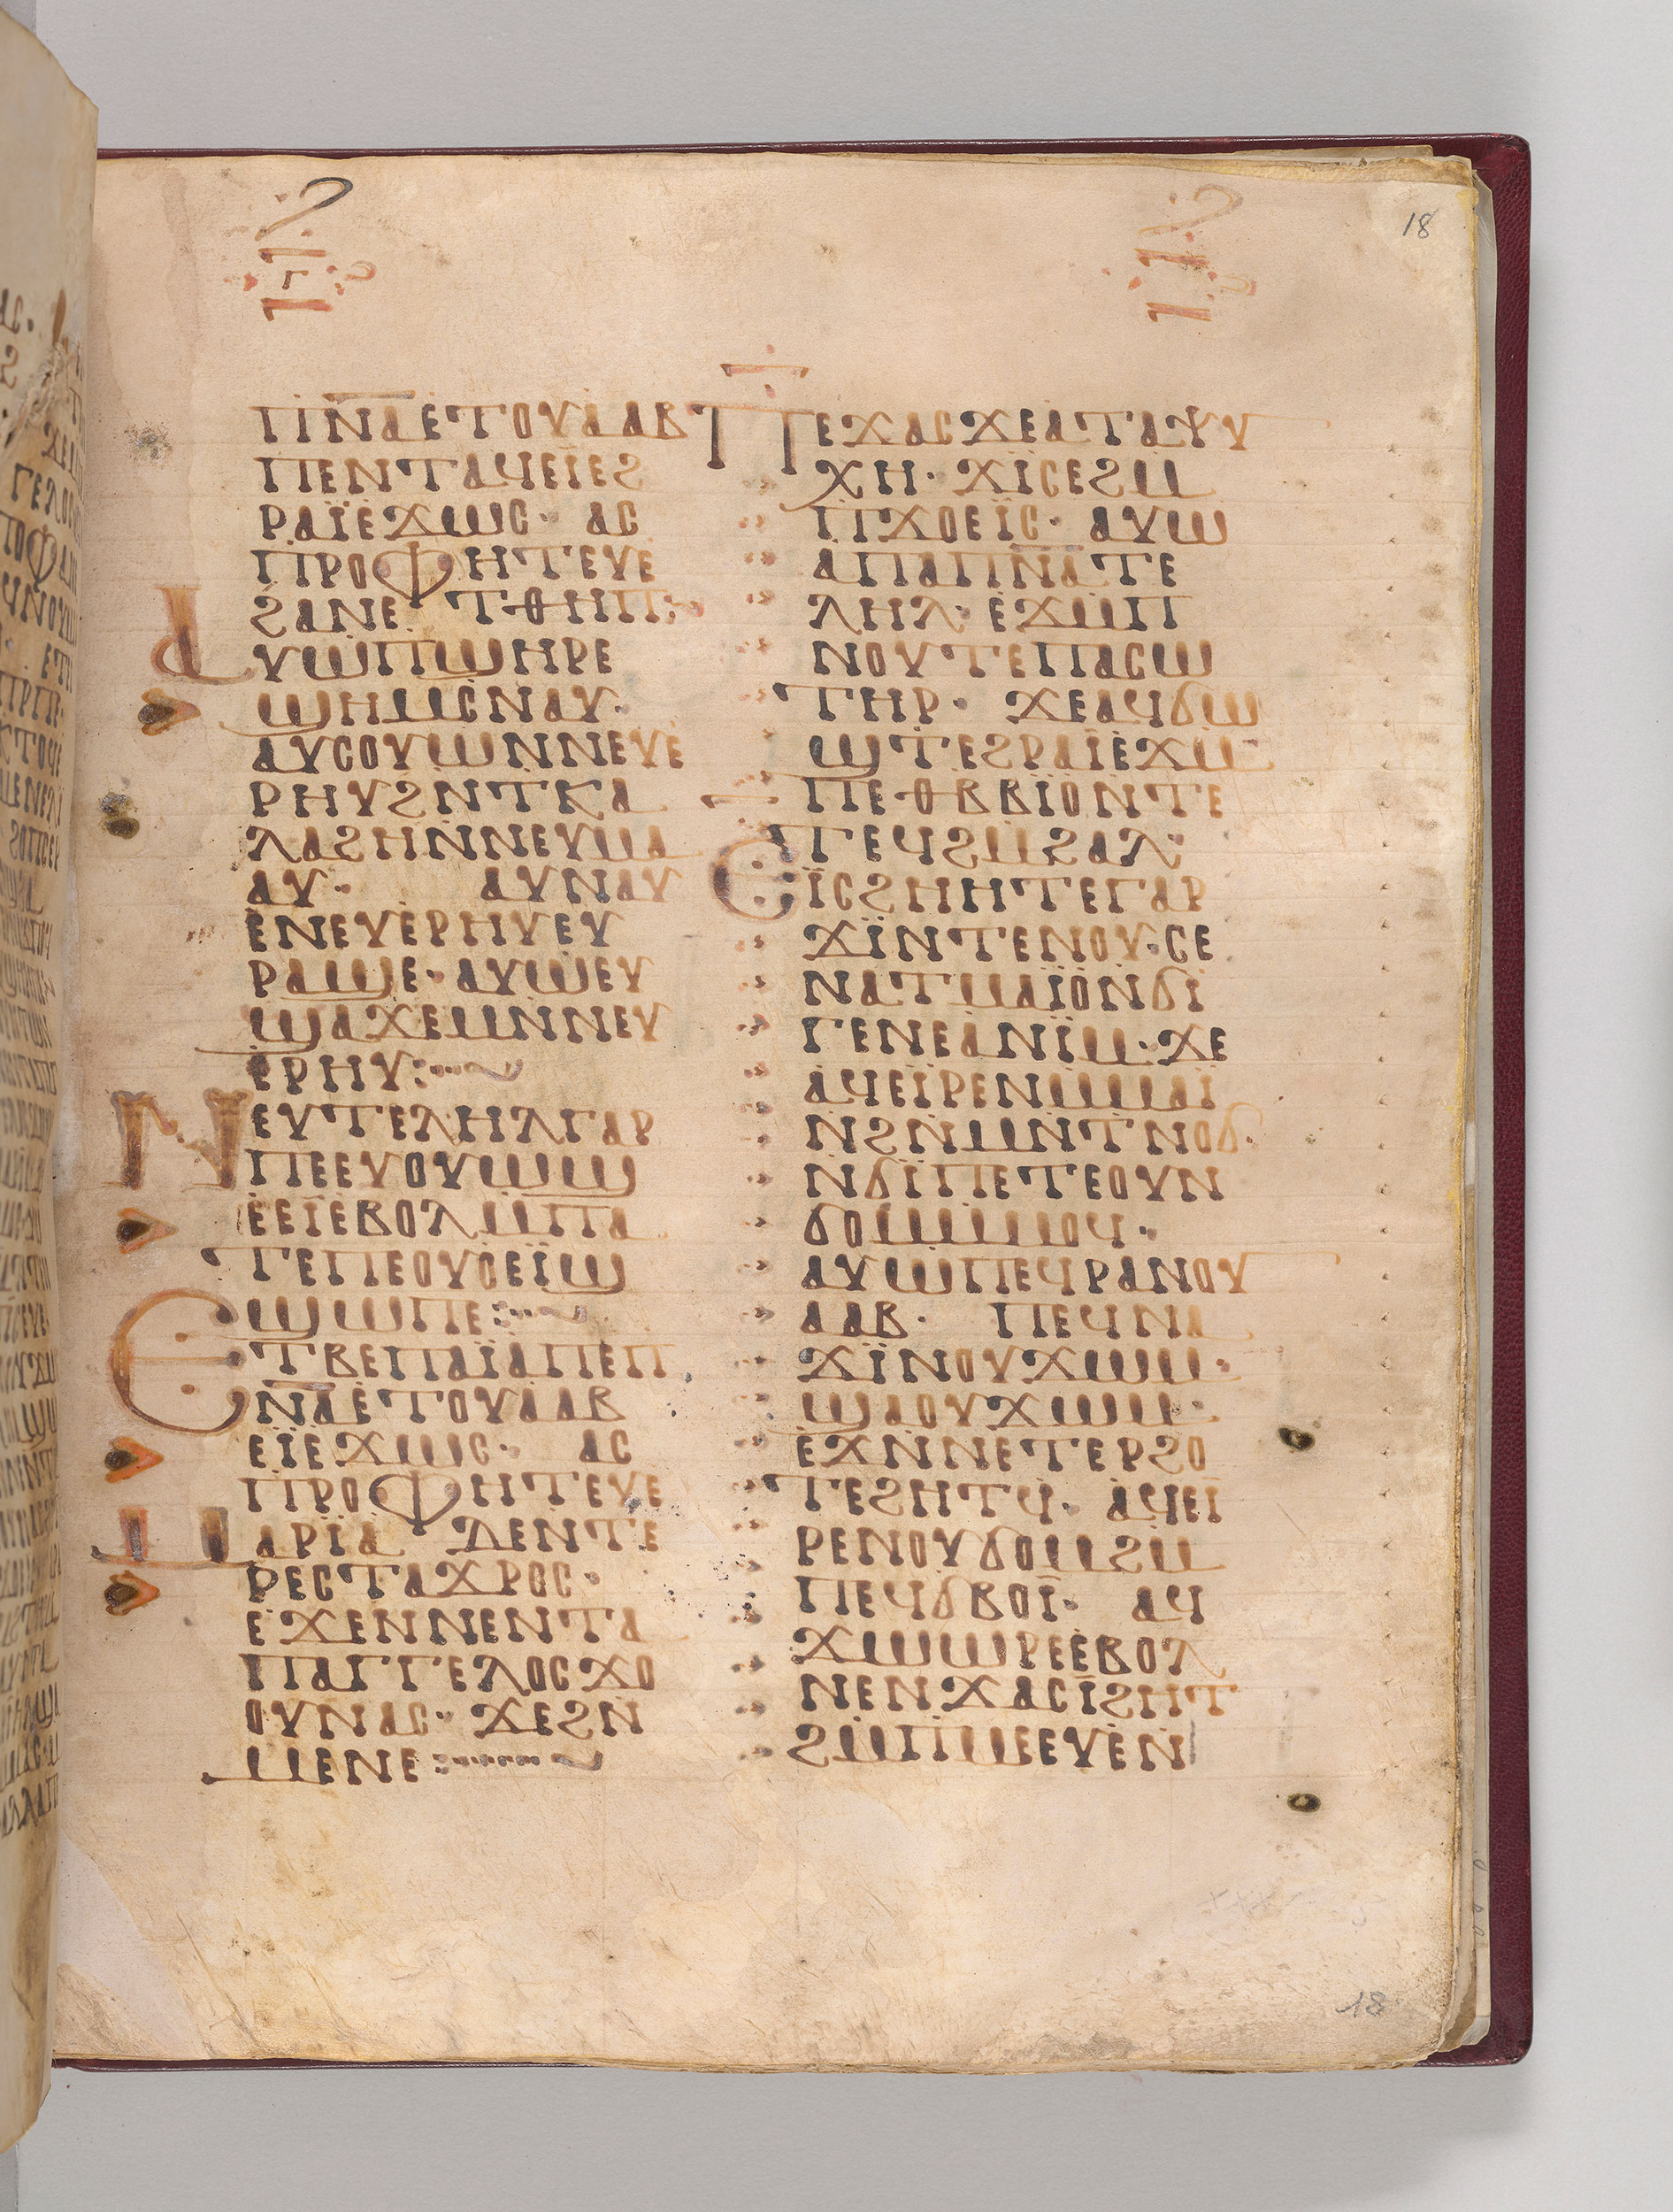 18
ⲡⲛ̅ⲁ̅ⲉⲧⲟⲩⲁⲁⲃ
ⲡⲉⲛⲧⲁϥⲉⲓ̈ⲉϩ
ⲣⲁⲓ̈ⲉϫⲱⲥ· ⲁⲥ
ⲡⲣⲟⲫⲏⲧⲉⲩⲉ
ϩⲁⲛⲉ ⲧⲑⲏⲡ:
ⲁⲩⲱⲡϣⲏⲣⲉ
ϣⲏⲙⲥⲛⲁⲩ·
ⲁⲩⲥⲟⲩⲱⲛⲛⲉⲩⲉ
ⲣⲏⲩϩⲛⲧⲕⲁ
ⲗⲁϩⲏⲛⲛⲉⲩⲙⲁ
ⲁⲩ· ⲁⲩⲛⲁⲩ
ⲉⲛⲉⲩⲉⲣⲏⲩⲉⲩ
ⲣⲁϣⲉ·ⲁⲩⲱⲉⲩ
ϣⲁϫⲉⲙⲛⲛⲉⲩ
ⲉⲣⲏⲩ:
ⲛⲉⲩⲧⲉⲗⲏⲗⲅⲁⲣ
ⲡⲉⲉⲩⲟⲩⲱϣ
ⲉⲉⲓ̈ⲉⲃⲟⲗⲙⲡⲁ
ⲧⲉⲡⲉⲟⲩⲟⲉⲓ̈ϣ
ϣⲱⲡⲉ:
ⲉⲧⲃⲉⲡⲁⲓ̈ⲁⲡⲉⲡ
ⲛ̅ⲁ̅ⲉⲧⲟⲩⲁⲁⲃ
ⲉⲓ̈ⲉϫⲱⲥ· ⲁⲥ
ⲡⲣⲟⲫⲏⲧⲉⲩⲉ
ⲙⲁⲣⲓ̈ⲁ ⲇⲉⲛⲧⲉ
ⲣⲉⲥⲧⲁϫⲣⲟⲥ·
ⲉϫⲉⲛⲛⲉⲛⲧⲁ
ⲡⲁⲅⲅⲉⲗⲟⲥϫⲟ
ⲟⲩⲛⲁⲥ· ϫⲉϩⲛ
ⲙⲉⲛⲉ:
ⲡⲉϫⲁⲥϫⲉⲁⲧⲁⲯⲩ
ⲭⲏ· ϫⲓ̈ⲥⲉϩⲙ
ⲡϫⲟⲉⲓ̈ⲥ· ⲁⲩⲱ
ⲁⲡⲁⲡⲛ̅ⲁ̅ⲧⲉ
ⲗⲏⲗ·ⲉϫⲙⲡ
ⲛⲟⲩⲧⲉⲡⲁⲥⲱ
ⲧⲏⲣ· ϫⲉⲁϥϭⲱ
ϣⲧⲉϩⲣⲁⲓ̈ⲉϫⲙ
ⲡⲉⲑⲃⲃⲓ̈ⲟⲛⲧⲉ
ⲧⲉϥϩⲙϩⲁⲗ·
ⲉⲓ̈ⲥϩⲏⲏⲧⲉⲅⲁⲣ
ϫⲓ̈ⲛⲧⲉⲛⲟⲩ·ⲥⲉ
ⲛⲁⲧⲙⲁⲓ̈ⲟⲛϭⲓ
ⲅⲉⲛⲉⲁⲛⲓ̈ⲙ·ϫⲉ
ⲁϥⲉⲓ̈ⲣⲉⲛⲙⲙⲁⲓ̈
ⲛϩⲛⲙⲛⲧⲛⲟϭ·
ⲛϭⲓ̈ⲡⲉⲧⲉⲟⲩⲛ
ϭⲟⲙⲙⲙⲟϥ·
ⲁⲩⲱⲡⲉϥⲣⲁⲛⲟⲩ
ⲁⲁⲃ· ⲡⲉϥⲛⲁ
ϫⲓ̈ⲛⲟⲩϫⲱⲙ·
ϣⲁⲟⲩϫⲱⲙ·
ⲉϫⲛⲛⲉⲧⲉⲣϩⲟ
ⲧⲉϩⲏⲧϥ· ⲁϥⲉⲓ̈
ⲣⲉⲛⲟⲩϭⲟⲙϩⲙ
ⲡⲉϥϭⲃⲟⲓ̈· ⲁϥ
ϫⲱⲱⲣⲉⲉⲃⲟⲗ
ⲛⲉⲛϫⲁⲥⲓ̈ϩⲏⲧ
ϩⲙⲡⲙⲉⲉⲩⲉⲛ
18